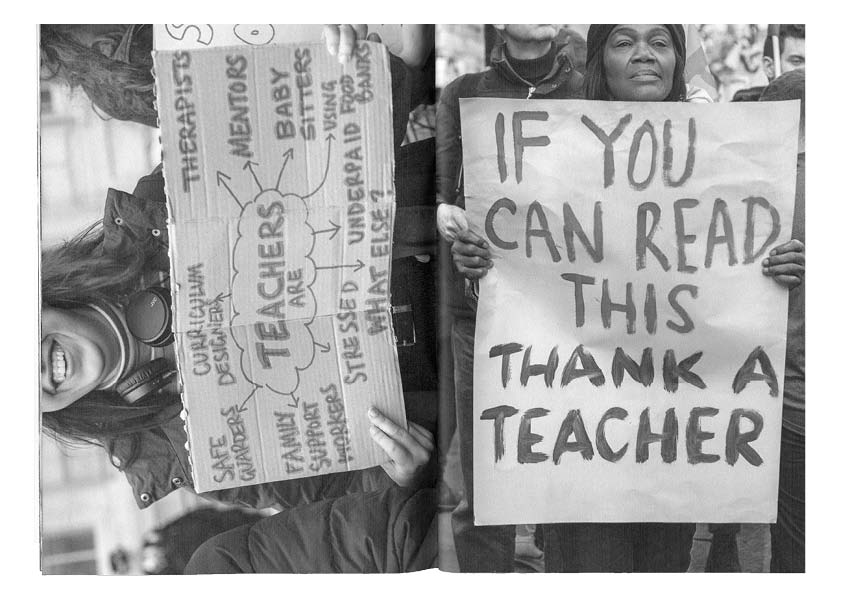 SAFE
GUARDERS
CURRICULUM
DESIGNERS
THERAPISTS
MENTORS
BABY
SITTERS
TEACHERS
ARE
FAMILY
SUPPORT
WORKERS
USING
FOOD
BANKS
STRESSED UNDERPAID
WHAT ELSE?
IF YOU
CAN READ
THIS
THANK A
TEACHER